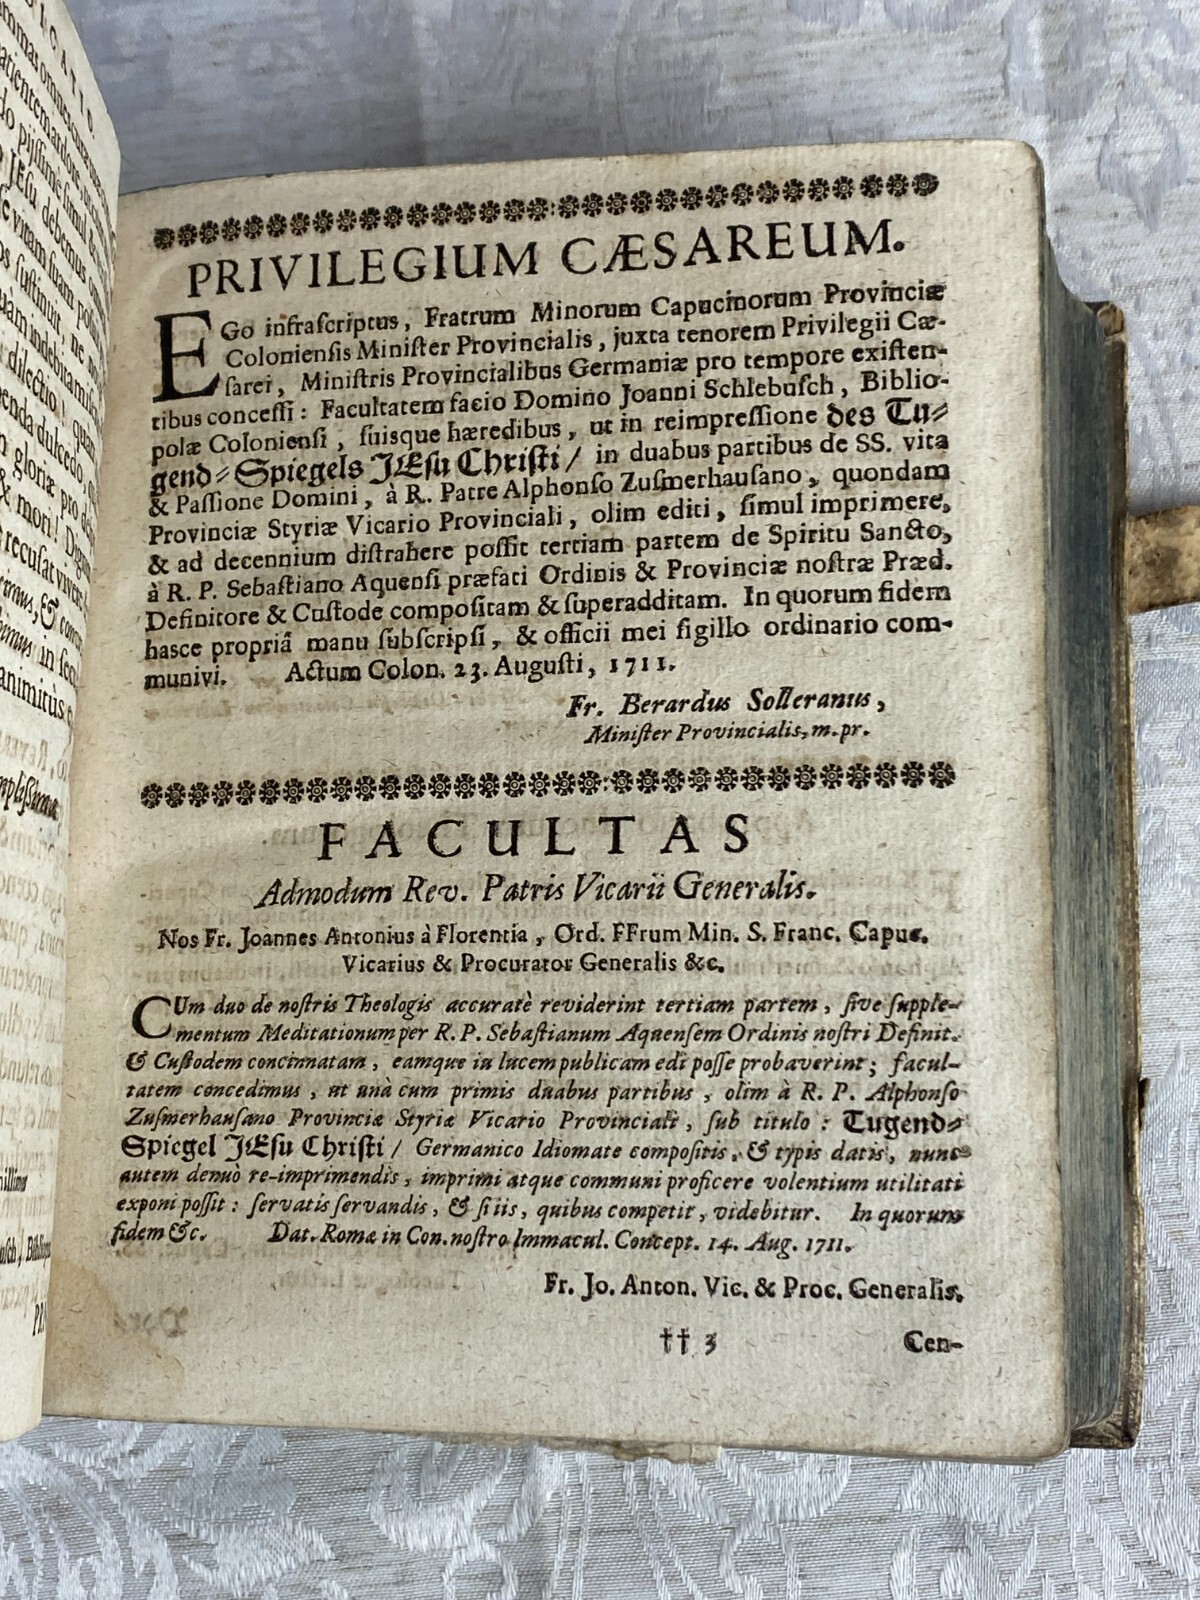 PRIVILEGIUM CÆSAREUM.
EGo infraſcriptus, Fratrum Minorum Capucinorum Provinciæ
Colonienſis Miniſter Provincialis, juxta tenorem Privilegii Cæ-
ſarei, Miniſtris Provincialibus Germaniæ pro tempore exiſten-
tibus conceſſi: Facultatem facio Domino Joanni Schlebuſch, Biblio-
polæ Colonienſi, ſuisque hæredibus, ut in reimpreſſione des Tu-
gend-Spiegels JEſu Chriſti/ in duabus partibus de SS. vita
& Paſſione Domini, à R. Patre Alphonſo Zuſmerhauſano, quondam
Provinciæ Styriæ Vicario Provinciali, olim editi, ſimul imprimere,
& ad decennium diſtrahere poſſit tertiam partem de Spiritu Sancto,
à R. P. Sebaſtiano Aquenſi præfati Ordinis & Provinciæ noſtræ Præd.
Definitore & Cuſtode compoſitam & ſuperadditam. In quorum fidem
hasce propriâ manu ſubſcripſi, & officii mei ſigillo ordinario com-
munivi. Actum Colon. 23. Auguſti, 1711.
Fr. Berardus Solleranus,
Miniſter Provincialis, m. pr.
FACULTAS
Admodum Rev. Patris Vicarii Generalis.
Nos Fr. Joannes Antonius à Florentia, Ord. FFrum Min. S. Franc. Capuc.
Vicarius & Procurator Generalis &c.
CUm duo de noſtris Theologis accuratè reviderint tertiam partem, ſive ſupple-
mentum Meditationum per R. P. Sebaſtianum Aquenſem Ordinis noſtri Definit.
& Cuſtodem concinnatam, eamque in lucem publicam edi poſſe probaverint; facul-
tatem concedimus, ut unà cum primis duabus partibus, olim à R. P. Alphonſo
Zuſmerhauſano Provinciæ Styriæ Vicario Provinciali, ſub titulo: Tugend-
Spiegel JEſu Chriſti/ Germanico Idiomate compoſitis, & typis datis, nunc
autem denuò re-imprimendis, imprimi atque communi proficere volentium utilitati
exponi poſſit: ſervatis ſervandis, & ſi iis, quibus competit, videbitur. In quorum
fidem &c. Dat. Romæ in Con. noſtro Immacul. Concept. 14. Aug. 1711.
Fr. Jo. Anton. Vic. & Proc. Generalis.
†† 3 Cen-